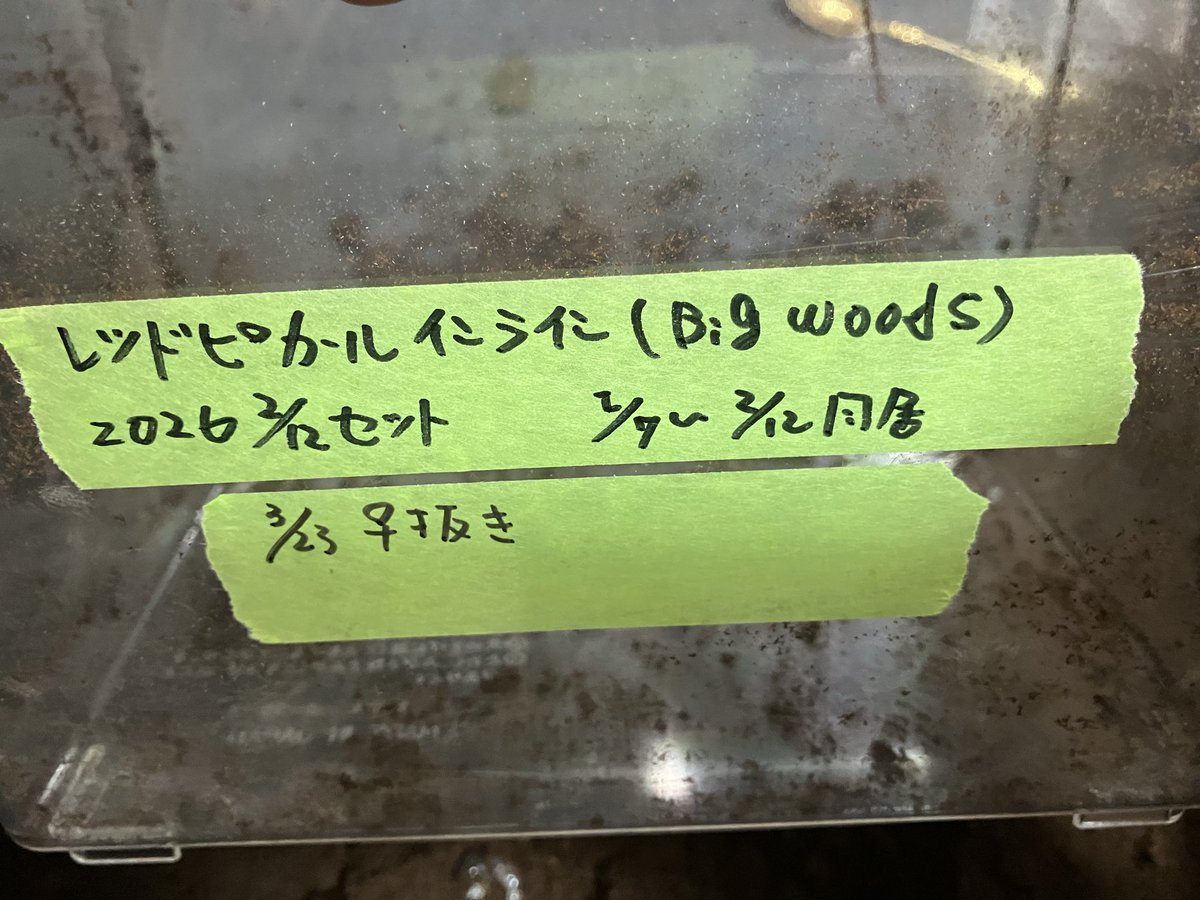 レッドピカール インライン (Big woods)
2026 2/12 セット 2/7〜 2/12 同居
3/23 早抜き